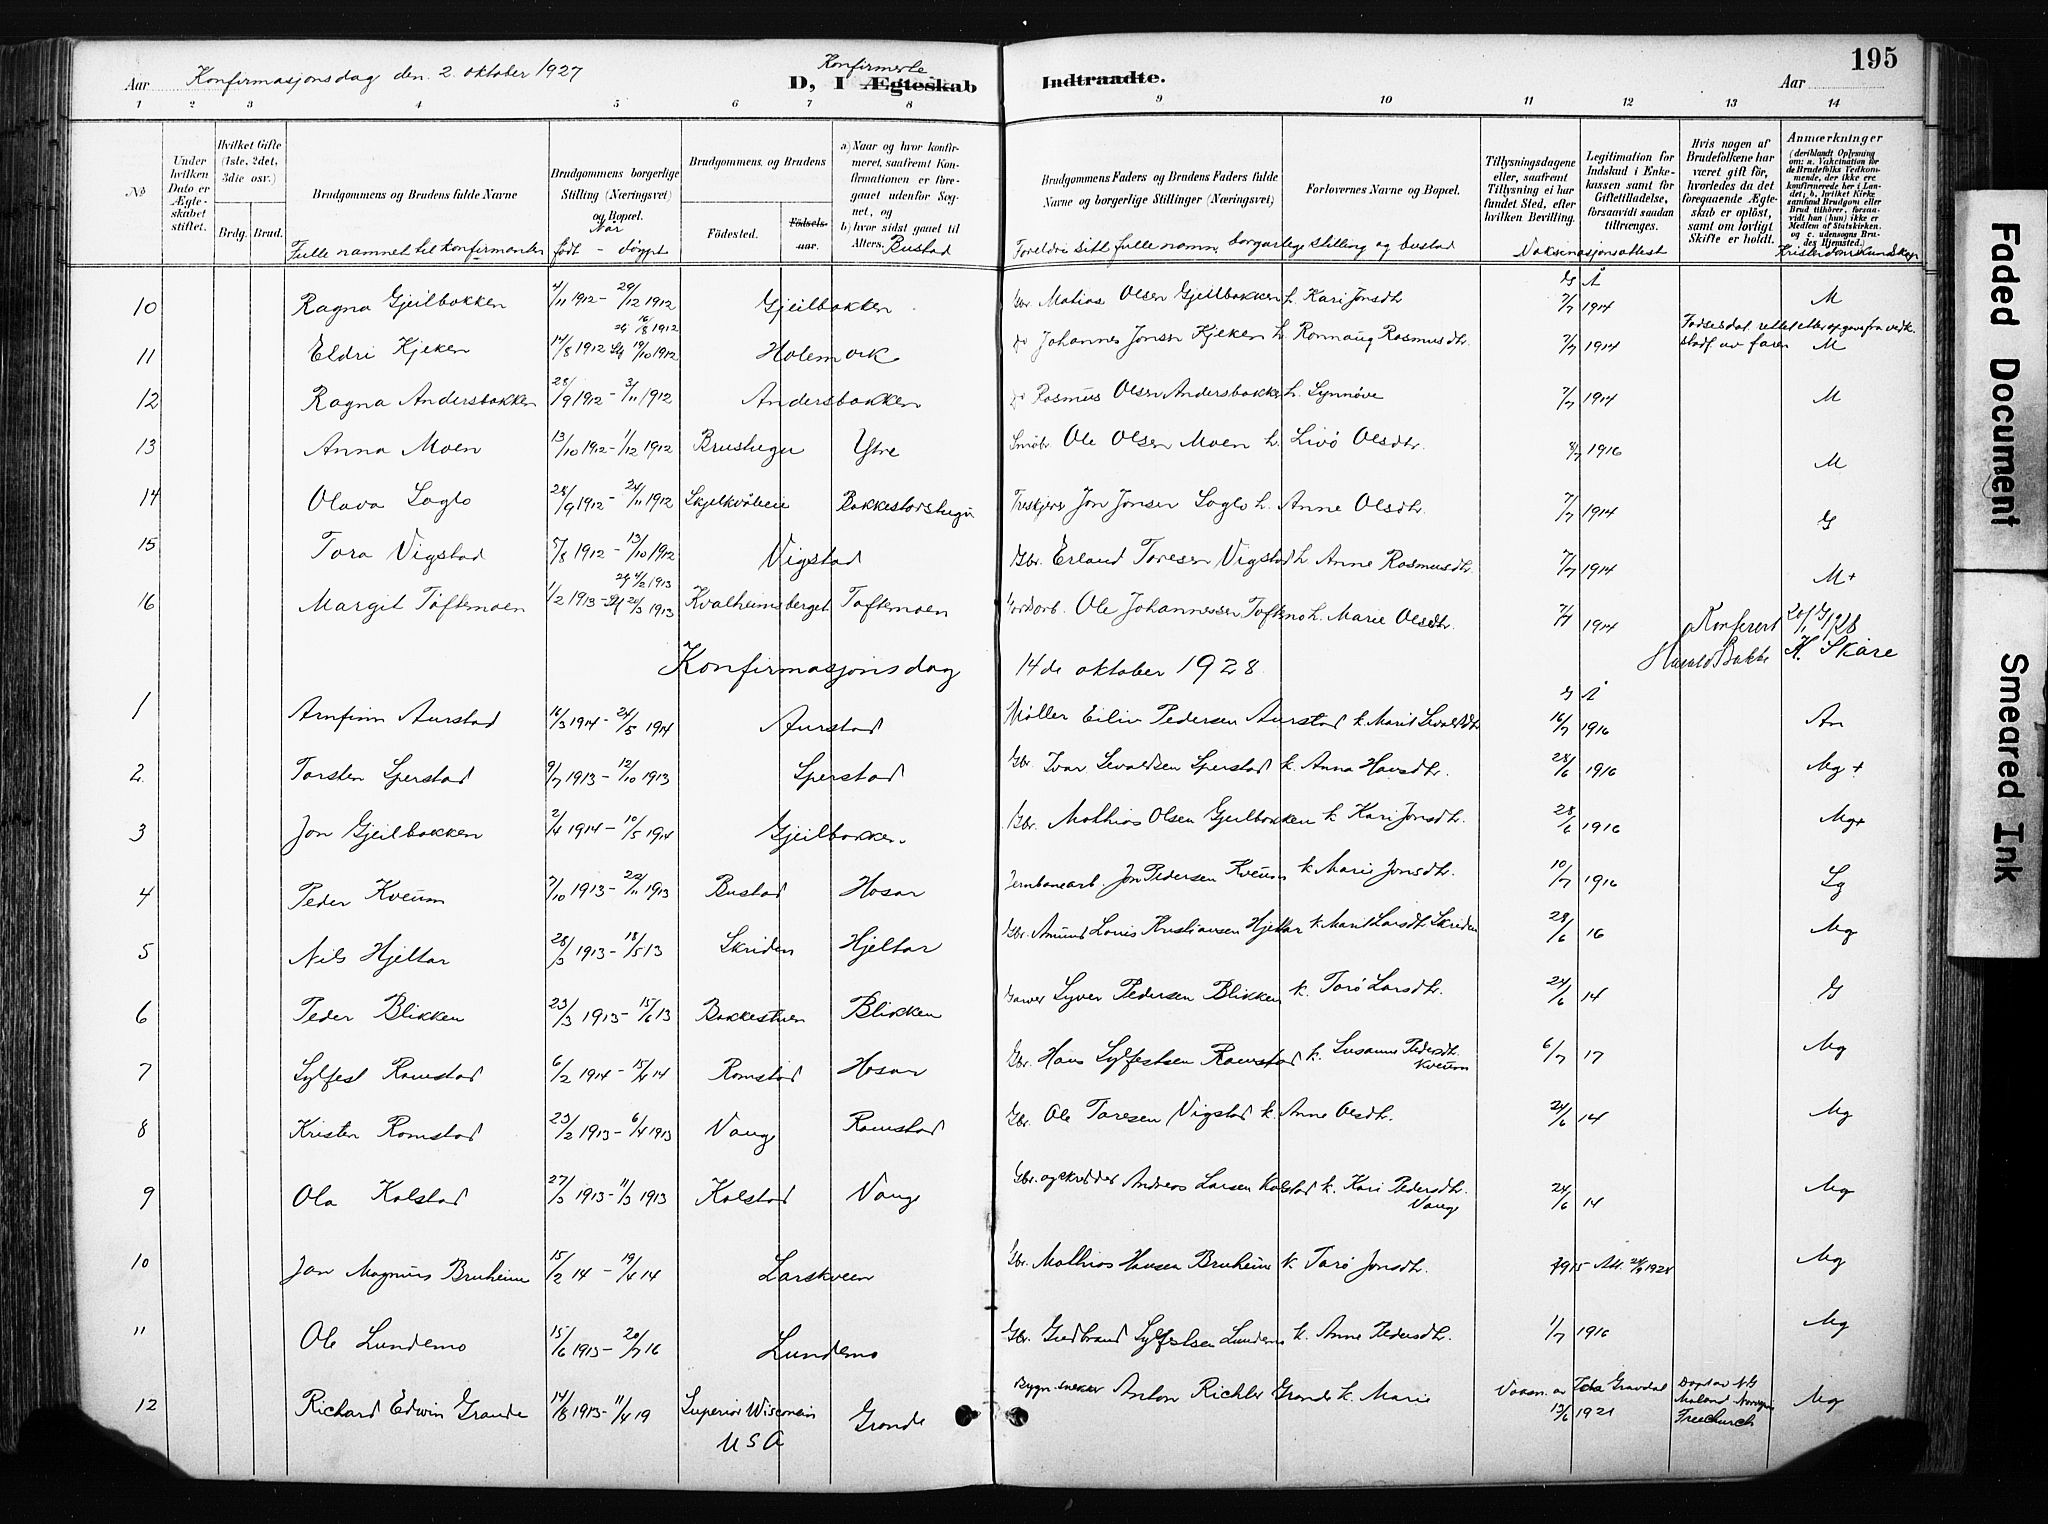 Aar Konfirmasjonsdag den 2. oktober 1927
Konfirmerte
D, I Ægteskab Indtraadte.
Aar
195
1 2 3 4 5 6 7 8 9 10 11 12 13 14
No
Under hvilken Dato er Ægteskabet stiftet.
Hvilket Gifte (1ste, 2det, 3die osv.)
Brdg. Brud.
Brudgommens og Brudens fulde Navne
Fulle namnet til konfirmanten
Brudgommens borgerlige Stilling (Næringsvei) og Bopæl.
Når født - døypt
Brudgommens og Brudens
Födested. Födsels-aar.
a) Naar og hvor konfirmeret, saafremt Konfirmationen er foregaaet udenfor Sognet, og
b) hvor sidst gaaet til Alters.
Bustad
Brudgommens Faders og Brudens Faders fulde Navne og borgerlige Stillinger (Næringsvei)
Forlovernes Navne og Bopæl.
Foreldri sitt fulle namn, borgarlege stilling og bustad
Tillysningsdagene eller, saafremt Tillysning ei har fundet Sted, efter hvilken Bevilling.
Legitimation for Indskud i Enkekassen samt for Giftetilladelse, forsaavidt saadan tiltrænges.
Vaksinasjonsattest
Hvis nogen af Brudefolkene har været gift för, hvorledes da det foregaaende Ægteskab er oplöst, samt om lovligt Skifte er holdt.
Anmærkninger
(deriblandt Oplysning om: a. Vakcination for de Brudefolks Vedkommende, der ikke ere konfirmerede her i Landet; b. hvilket Kirkesamfund Brudgom eller Brud tilhörer, forsaavidt han (hun) ikke er Medlem af Statskirken. og c. udensogns Brudes Hjemsted.)
Kristendomskunskap
10 Ragna Gjeilbakken 4/11 1912 - 29/12 1912 Gjeilbakken Gbr. Matias Olsen Gjeilbakken h. Kari Jonsdtr 7/7 1914 M
11 Eldri Kjeken 14/8 1912 19/10 1912 Holemork Johannes Jonsen Kjeken h. Rønnaug Rasmusdtr. 7/7 1914 M
Fødselsdat. rettet etter opgave fra vedk. stadf. av faren
12 Ragna Andersbakken 28/9 1912 - 3/11 1912 Andersbakken Rasmus Olsen Andersbakken h. Synnøve 7/7 1914 M
13 Anna Moen 13/10 1912 - 1/12 1912 Brustugu Ytre Småbr. Ole Olsen Moen h. Livø Olsdtr. 4/7 1916 M
14 Olava Saglo 28/9 1912 - 24/11 1912 Skjelkvåleie Bakkestadstugu Treskjerer Jon Jonsen Saglo h. Anne Olsdtr. 7/7 1914 G
15 Tora Vigstad 5/8 1912 - 13/10 1912 Vigstad Gbr. Erland Toresen Vigstad h. Anne Rasmusdtr. 7/7 1914 M+
16 Margit Toftemoen 1/2 1913 - 20/3 1913 Kvalheimsberget Toftemoen Jordarb. Ole Johannessen Toftemo h. Marie Olsdtr. 7/7 1914
Konferert 20/1 1928
Harald Bakke H. Skåre
Konfirmasjonsdag 14de oktober 1928.
1 Arnfinn Aurstad 16/3 1914 - 24/5 1914 Aurstad Møller Eiliv Pedersen Aurstad k. Marit Sevaldsdtr 16/7 1916
2 Torsten Sperstad 9/7 1913 - 12/10 1913 Sperstad Gbr. Ivar Sevaldsen Sperstad k. Anna Hansdtr. 28/6 1916 Mg +
3 Jon Gjeilbakken 2/4 1914 - 10/5 1914 Gjeilbakken. Gbr. Mathias Olsen Gjeilbakken k. Kari Jonsdtr. 28/6 1916 Mg+
4 Peder Kveum 7/10 1913 - 22/11 1913 Bustad Hosar Jernbanearb. Jon Pedersen Kveum k. Marie Jonsdtr. 10/7 1916 Sg
5 Nils Hjeltar 28/3 1913 - 18/5 13 Skriden Hjeltar Gbr. Amund Louis Kristiansen Hjeltar k. Marit Larsdtr Skriden 28/6 16 Mg
6 Peder Blikken 23/3 1913 - 15/6 13 Bakkestuen Blikken Garver Syver Pedersen Blikken k. Torø Larsdtr. 24/6 14 G
7 Sylfest Ramstad 6/2 1914 - 15/4 14 Romstad Hosar Gbr. Hans Sylfestsen Ramstad k. Susanne Pedersdtr. Kveum 6/7 17 Mg
8 Kristen Romstad 23/2 1913 - 6/4 1913 Vange Ramstad Gbr. Ole Toresen Vigstad k. Anne Olsdtr. 24/6 14 Mg
9 Ola Kolstad 27/3 1913 - 11/3 1913 Kolstad Vange Gbr. og skredder Andreas Larsen Kolstad k. Kari Pedersdtr. Vange 24/6 14 Mg
10 Jon Magnus Bruheim 15/2 14 - 19/4 14 Larskveen Gbr. Mathias Hansen Bruheim k. Torø Jonsdtr. 1915 Att. 24/9 1928 Mg
11 Ole Lundemo 15/6 1913 - 20/7 16 Lundemo Gbr. Gudbrand Sylfestsen Lundemo k. Anne Pedersdtr. 1/7 1916 Mg
12 Richard Edwin Grande 14/8 1913 - 11/4 19 Superior Wisconsin USA Grande Bygn.snekker Anton Richter Grande k. Marie Vaksn. av Gravdal 13/6 1921 Døpt av Norwegian Freechurch Mg
Faded Document
Smeared Ink